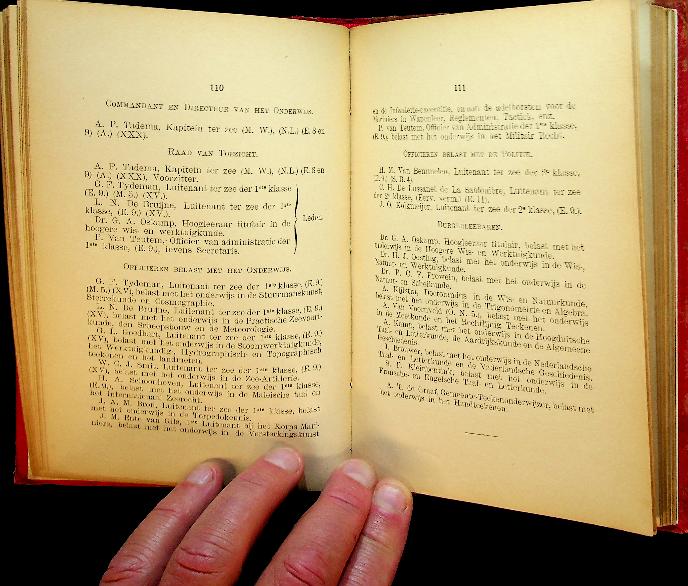 110
COMMANDANT EN DIRECTEUR VAN HET ONDERWIJS.
A. P. Tadema, Kapitein ter zee (M. W.), (N.L.) (E. S en
9) (A.) (XXX).
RAAD VAN TOEZICHT.
A. P. Tadema, Kapitein ter zee (M. W.), (N.L.) (E. S en
9) (A.) (XXX), Voorzitter.
G. F. Tydeman, Luitenant ter zee der 1ste klasse
(E. 9.) (M. 5.) (XV.)
L. N. De Bruijne, Luitenant ter zee der 1ste
klasse, (E. 9.) (XV.)
Dr. G. A. Oskamp, Hoogleeraar titulair in de
hoogere wis- en werktuigkunde.
P. Van Teutem, Officier van administratie der
1ste klasse, (E. 9.), tevens Secretaris.
Leden.
OFFICIEREN BELAST MET HET ONDERWIJS.
G. F. Tydeman, Luitenant ter zee der 1ste klasse, (E. 9.)
(M. 5.) (XV.), belast met het onderwijs in de Stuurmanskunst,
Sterrekunde en Cosmographie.
L. N. De Bruijne, Luitenant ter zee der 1ste klasse, (E. 9.)
(XV.), belast met het onderwijs in de Practische Zeevaart-
kunde, den Scheepsbouw en de Meteorologie.
Luitenant ter zee der 1ste klasse, (E. 9.)
(XV.), belast met het onderwijs in de Stoomwerktuigkunde,
het Werktuigkundig, Hydrographisch en Topographisch
teekenen en het landmeten.
W. C. J. Smit, Luitenant ter zee der 1ste klasse, (E. 9.)
(XV.), belast met het onderwijs in de Zee-Artillerie.
H. A. Schoonhoven, Luitenant ter zee der 1ste klasse,
(E. 9.), belast met het onderwijs in de Maleische taal en
het Internationaal Zeerecht.
J. A. M. Bron, Luitenant ter zee der 1ste klasse, belast
met het onderwijs in de Torpedokennis.
J. M. Rute van Gils, 1ste Luitenant bij het Korps Mari-
niers, belast met het onderwijs in de Versterkingskunst
111
en de Infanterie-exercitie, en aan de adelborsten voor de
Mariniers in Wapenleer, Reglementen, Tactiek, enz.
P. van Teutem, Officier van Administratie der 1ste klasse,
(E. 9.), belast met het onderwijs in het Militair Recht.
OFFICIEREN BELAST MET DE POLITIE.
H. M. Van Bemmelen, Luitenant ter zee der 1ste klasse,
C. H. De Lussanet de La Sablonière, Luitenant ter zee
der 2e klasse, (Eerv. verm.) (M. 11).
J. O. Kolkmeijer, Luitenant ter zee der 2e klasse, (E. 9.).
BURGERLEERAREN.
Dr. G. A. Oskamp, Hoogleeraar titulair, belast met het
onderwijs in de Hoogere Wis- en Werktuigkunde.
Dr. H. J. Oosting, belast met het onderwijs in de Wis-,
Natuur- en Werktuigkunde.
Dr. P. C. F. Frowein, belast met het onderwijs in de
Natuur- en Scheikunde.
A. Nijstra, Doctorandus in de Wis- en Natuurkunde,
belast met het onderwijs in de Trigonometrie en Algebra.
A. Van Voornveld (O. N. 5.), belast met het onderwijs
in de Meetkunde en het Rechtlijnig Teekenen.
A. Kempt, belast met het onderwijs in de Hoogduitsche
Taal- en Letterkunde, de Aardrijkskunde en de Algemeene
Geschiedenis.
Brouwer, belast met het onderwijs in de Nederlandsche
Taal- en Letterkunde en de Vaderlandsche Geschiedenis.
Kleinbentink, belast met het onderwijs in de
Fransche- en Engelsche Taal- en Letterkunde.
A. 't. de Graaf, Gemeente-Teekenonderwijzer, belast met
het onderwijs in het Handteekenen.